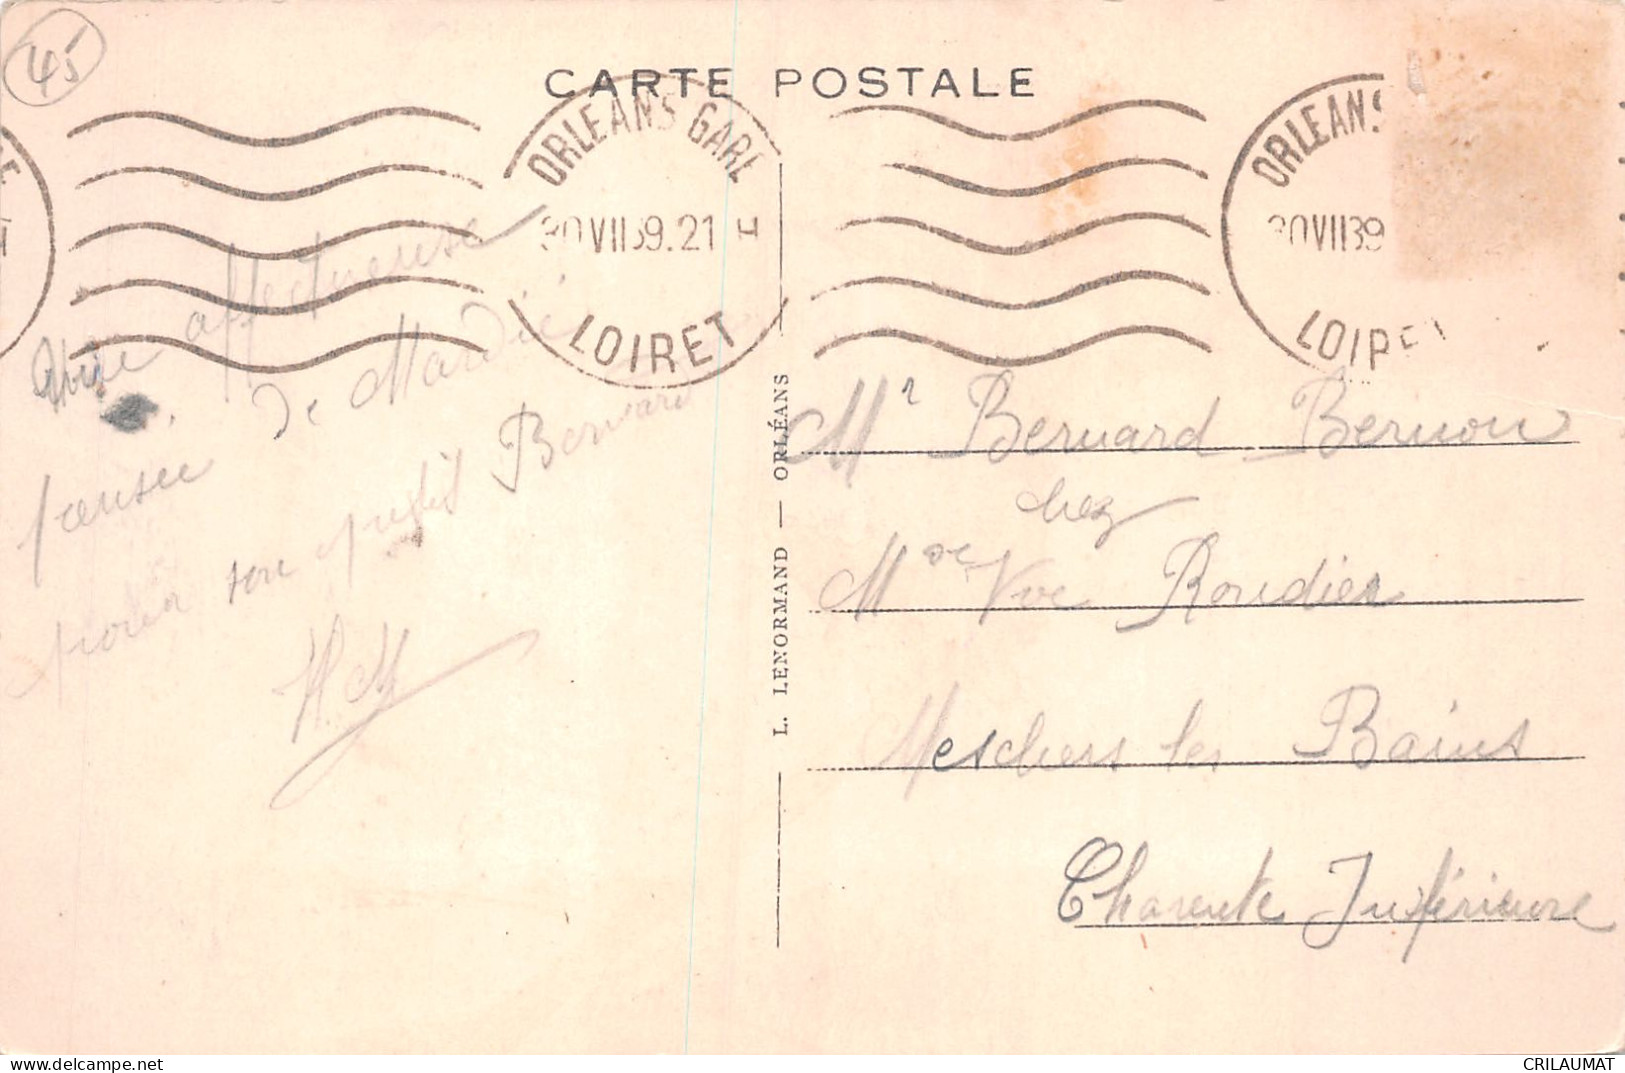 45
CARTE POSTALE
ORLEANS GARE
30 VII 39. 21 H
LOIRET
ORLEANS
30 VII 39
LOIRET
Une affectueuse
pensée de Mardié
pour son petit Bernard
L. LENORMAND — ORLÉANS
Mr Bernard Bernon
chez
Mme Vve Roudier
Meschers les Bains
Charente Inférieure
CRILAUMAT